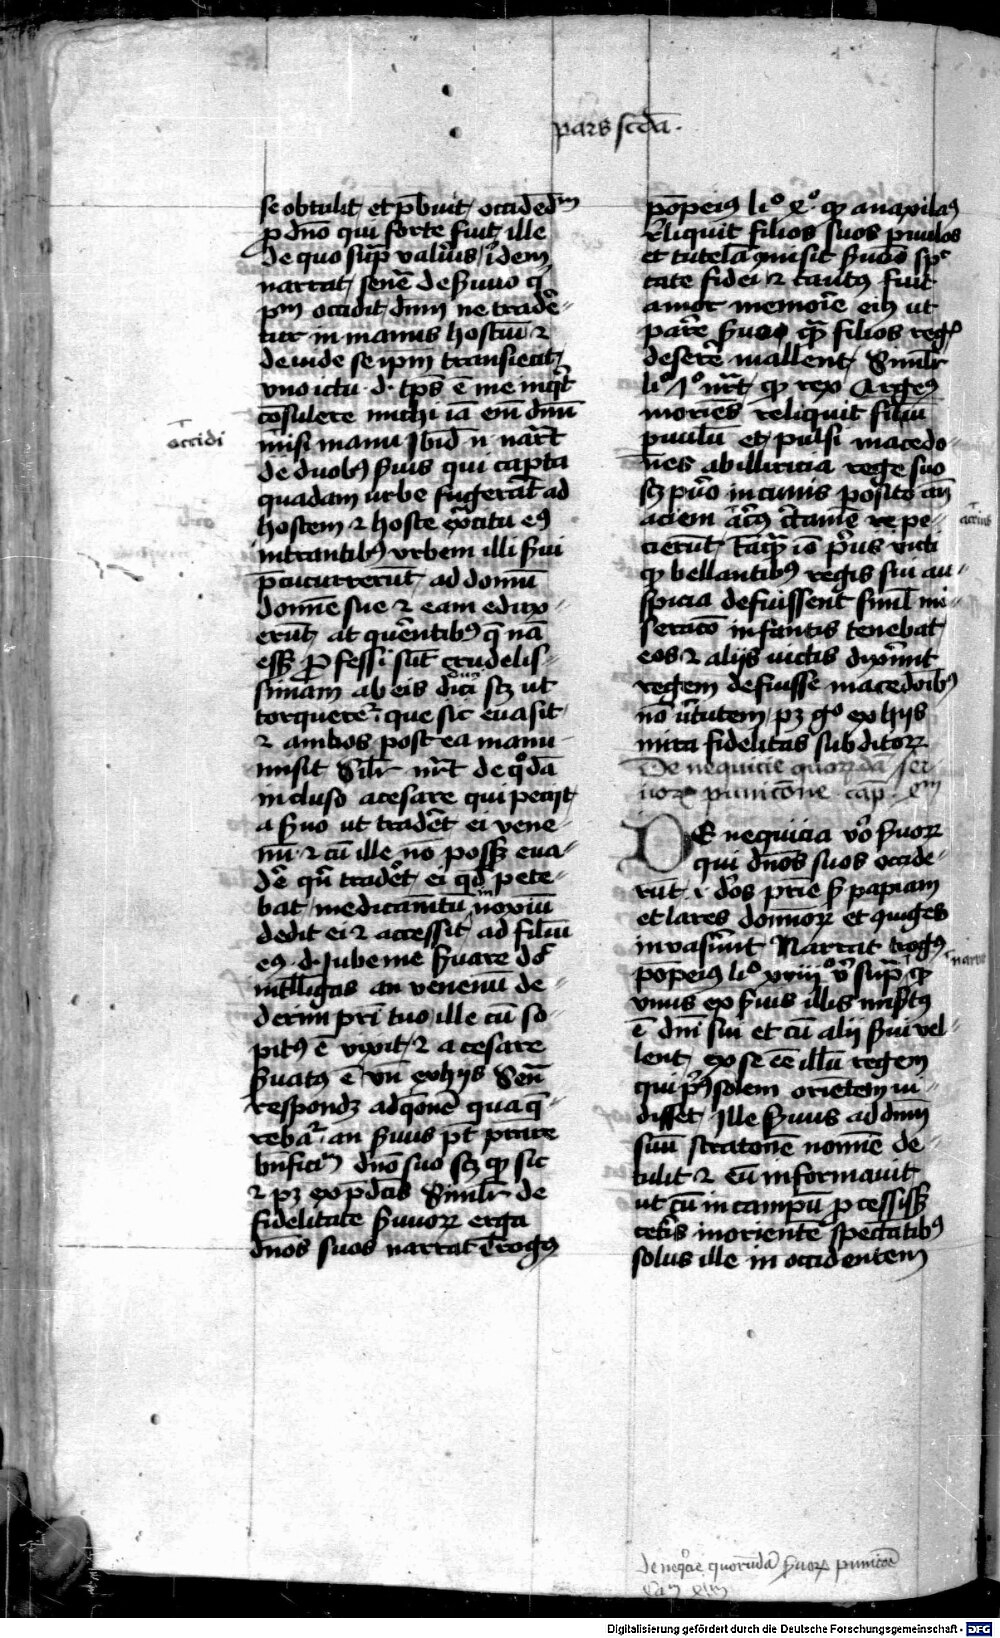 pars scda.
se obtulit et pbuit occidedm
p dno qui forte fuit ille
de quo sup valius idem
narrat senē de suo q
pm occidit dnm ne tradē-
tur in manus hostiū ⁊
deinde se ipm transiecit
vno ictu d. tps ē me inqt
cōsulere michi iā em dnm
occidi
misi manu Ibid n narrt
de duobus suis qui capta
quadam urbe fugerāt ad
hostem ⁊ hoste exitu eꝰ
intrantibꝰ vrbem illi sui
pcucurrerūt ad domū
domīe sue ⁊ eam edux-
erūt at querentibꝰ q nā
ess professi sūt crudelis-
simam ab eis dici scz ut
torqueret que sic euasit
⁊ ambos post ea manu
misit Silr nrt de qdā
incluso a cesare qui pecijt
a suo ut tradet ei vene-
nū ⁊ cū ille no poss eua-
de qn tradet ei qd pete-
bat medicamtū noxiū
dedit ei ⁊ accessit ad filiū
eꝰ d. Iube me suare do
intelligas an venenū de-
derim pri tuo ille cū so-
pitꝰ ē vixit ⁊ a cesare
suatꝰ ē Vn ex hijs Sen
respondz ad qonē qua q-
rebar an suus pt prare
bnficm dno suo scz qp sic
⁊ pz ex pdcis Similr de
fidelitate suuorꝝ erga
dnos suos narrat Trogꝰ
pōpeiꝰ lio xo. qp anaxilaꝰ
reliquit filios suos puulos
et tutelā cmisit suo spc
tate fidei ⁊ tantꝰ fuit
amor memorie eiꝰ ut
pare suo qm filios regꝭ
desere mallent Similr
lio 7o nrt qp rex Argeꝰ
moriēs reliquit filiū
puulū et pulsi macedo-
nes ab illiricia rege suo
scz puo in cunis posito an
aciem acrꝰ ctamē repe-
acrius
cierūt tāqm io prius victi
qp bellantibꝰ regis sui au-
spicia defuissent siml mi-
seraco infantis tenebat
eos ⁊ alijs victis dixerunt
regem defuisse macedoibꝰ
no virtutem pz go ex hijs
mira fidelitas subditorꝝ
De nequicie quorꝝdā ser
uorꝝ punicōne cap. xm
DE nequicia vo suorꝝ
qui dnos suos occide-
rūt ⁊ dos prie s papiam
et lares domiorꝝ et quiges
invaserunt Narrat trogꝰ
pōpeiꝰ lio xviiio vt sup qp
vnus ex suis illis misertꝰ
ē dni sui et cū alii sui vel-
lent ex se ee illū regem
qui prꝰ solem orietem ui-
disset Ille suus ad dnm
suū stratonē nomīe de-
tulit ⁊ eū informauit
ut cū in campū pcessiss
ceteris in oriente spectātibꝰ
solus ille in occidentem
de neqcie quorundā suorꝝ punicōe
Cam xm
Digitalisierung gefördert durch die Deutsche Forschungsgemeinschaft - DFG